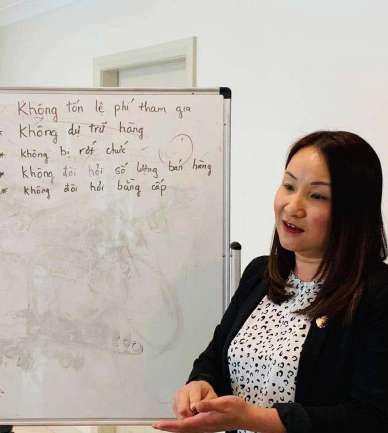 Không tốn lệ phí tham gia
* Không dự trữ hàng
* Không bị rớt chức
* Không đòi hỏi số lượng bán hàng
* Không đòi hỏi bằng cấp